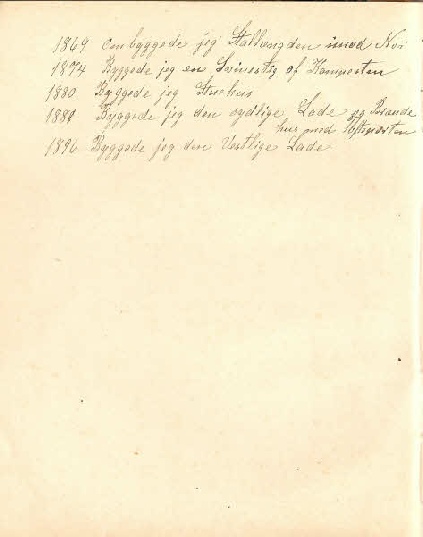 1869 Ombyggede jeg Staldlængden imod Nor
1874 Byggede jeg en Svinestig af Kampesten
1880 Byggede jeg Stuehus
1889 Byggede jeg den sydlige Lade og Brænde
hus med
1896 Byggede jeg den Vestlige Lade